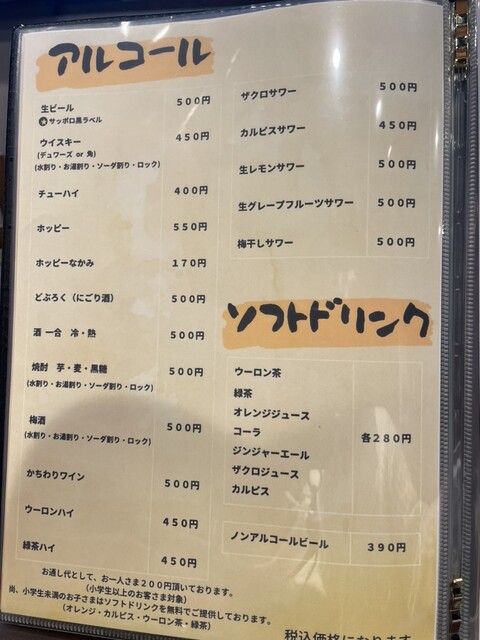 アルコール
生ビール 500円
サッポロ黒ラベル
ウイスキー 450円
(デュワーズ or 角)
(水割り・お湯割り・ソーダ割り・ロック)
チューハイ 400円
ホッピー 550円
ホッピーなかみ 170円
どぶろく(にごり酒) 500円
酒 一合 冷・熱 500円
焼酎 芋・麦・黒糖 500円
(水割り・お湯割り・ソーダ割り・ロック)
梅酒 500円
(水割り・お湯割り・ソーダ割り・ロック)
かちわりワイン 500円
ウーロンハイ 450円
緑茶ハイ 450円
ザクロサワー 500円
カルピスサワー 450円
生レモンサワー 500円
生グレープフルーツサワー 500円
梅干しサワー 500円
ソフトドリンク
ウーロン茶
緑茶
オレンジジュース
コーラ 各280円
ジンジャーエール
ザクロジュース
カルピス
ノンアルコールビール 390円
お通し代として、お一人さま200円頂いております。
(小学生以上のお客さま対象)
尚、小学生未満のお子さまはソフトドリンクを無料でご提供しております。
(オレンジ・カルピス・ウーロン茶・緑茶)
税込価格になります